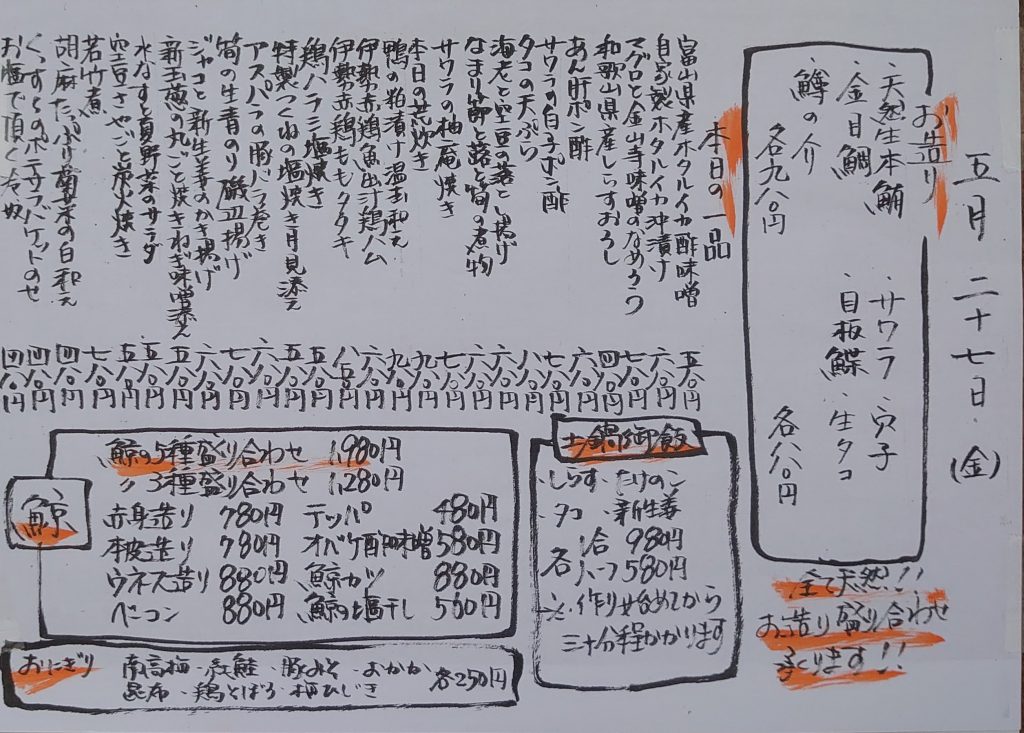 五月二十七日(金)
お造り
・天然生本鮪 ・サワラ ・穴子
・金目鯛 ・目板鰈 ・生タコ
・鱒の介
各九八〇円
各八八〇円
全て天然!!
お造り盛り合わせ
承ります!!
本日の一品
富山県産ホタルイカ酢味噌 五八〇円
自家製ホタルイカ沖漬け 六八〇円
マグロと金山寺味噌のなめろう 七八〇円
和歌山県産しらすおろし 四八〇円
あん肝ポン酢 六八〇円
サワラの白子ポン酢 六八〇円
タコの天ぷら 八八〇円
海老と空豆の落とし揚げ 六八〇円
なまり節と蕗と筍の煮物 七八〇円
サワラの柚庵焼き 九八〇円
本日の荒炊き 九八〇円
鴨の粕漬け温玉和え 六八〇円
伊勢赤鶏魚出汁鶏ハム 八五〇円
伊勢赤鶏ももタタキ 五八〇円
鶏ハラミ塩焼き 五八〇円
特製つくねの塩焼き月見添え 六八〇円
アスパラの豚バラ巻き 七八〇円
筍の生青のり磯辺揚げ 六八〇円
ジャコと新生姜のかき揚げ 六八〇円
新玉葱の丸ごと焼きねぎ味噌添え 五八〇円
水なすと夏野菜のサラダ 五八〇円
空豆さやごと炭火焼き 五八〇円
若竹煮 七八〇円
胡麻たっぷり 菜の白和え 四八〇円
ポテサラバゲットのせ 四八〇円
お塩で頂く冷奴 四八〇円
土鍋御飯
・しらす ・たけのこ
・タコ ・新生姜
各 1合 980円
ハーフ 580円
※作り始めてから
三十分程かかります
鯨
鯨の5種盛り合わせ 1,980円
〃 3種盛り合わせ 1,280円
赤身造り 780円 テッパ 480円
本皮造り 780円 オバケ酢味噌 580円
ウネス造り 880円 鯨カツ 880円
ベーコン 880円 鯨の塩干し 550円
おにぎり 南高梅・紅鮭・豚みそ・おかか
昆布・鶏そぼろ・梅ひじき 各250円